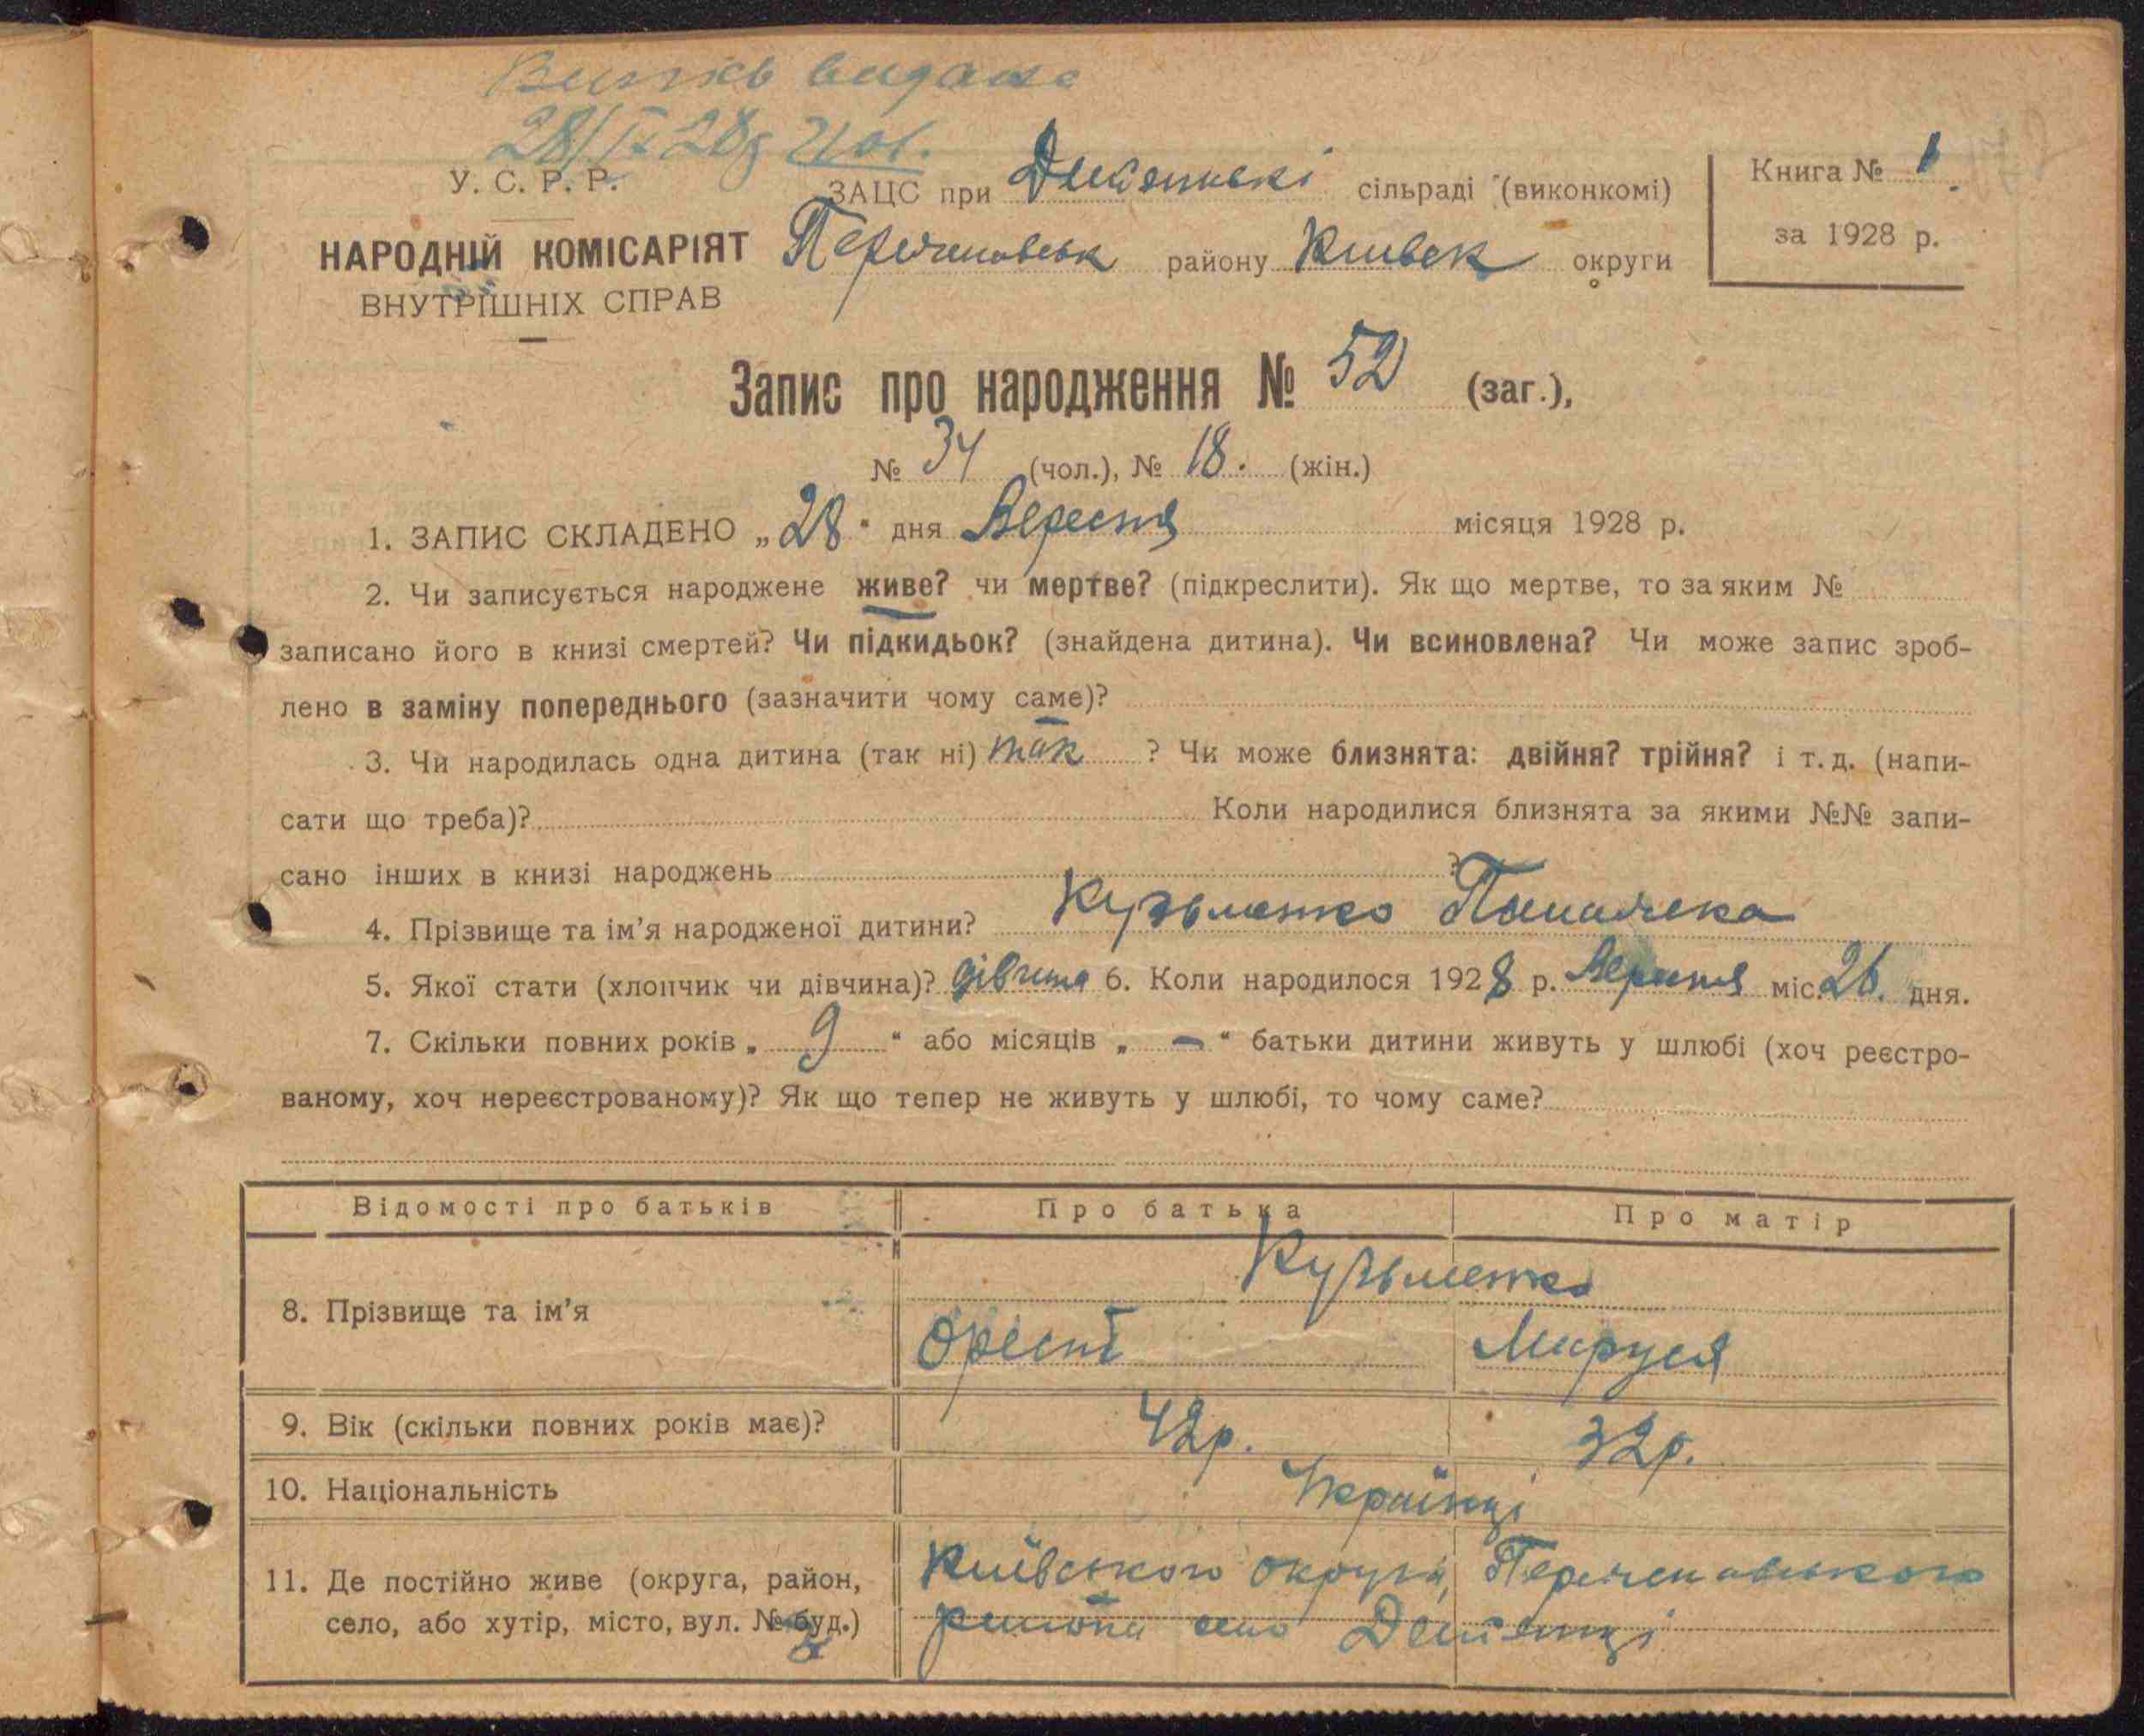 видано
28/IX 28р
У. С. Р. Р.
ЗАЦС при сільраді (виконкомі)
Книга № 1
НАРОДНІЙ КОМІСАРІЯТ району Київськ округи
за 1928 р.
ВНУТРІШНІХ СПРАВ
Запис про народження № 52 (заг.),
№ 34 (чол.), № 18. (жін.)
1. ЗАПИС СКЛАДЕНО „28" дня Вересня місяця 1928 р.
2. Чи записується народжене живе? чи мертве? (підкреслити). Як що мертве, то за яким №
записано його в книзі смертей? Чи підкидьок? (знайдена дитина). Чи всиновлена? Чи може запис зроб-
лено в заміну попереднього (зазначити чому саме)?
3. Чи народилась одна дитина (так ні) так ? Чи може близнята: двійня? трійня? і т. д. (напи-
сати що треба)? Коли народилися близнята за якими №№ запи-
сано інших в книзі народжень ?
4. Прізвище та ім'я народженої дитини? Кузьменко
5. Якої стати (хлопчик чи дівчина)? дівчина 6. Коли народилося 1928 р. Вересня міс. 26. дня.
7. Скільки повних років „ 9 “ або місяців „ — “ батьки дитини живуть у шлюбі (хоч реєстро-
ваному, хоч нереєстрованому)? Як що тепер не живуть у шлюбі, то чому саме?
Відомості про батьків Про батька Про матір
Кузьменко
8. Прізвище та ім'я
Орест Маруся
9. Вік (скільки повних років має)? 42р. 32р.
10. Національність Українці
11. Де постійно живе (округа, район, Київського округи,
село, або хутір, місто, вул. № буд.) району село